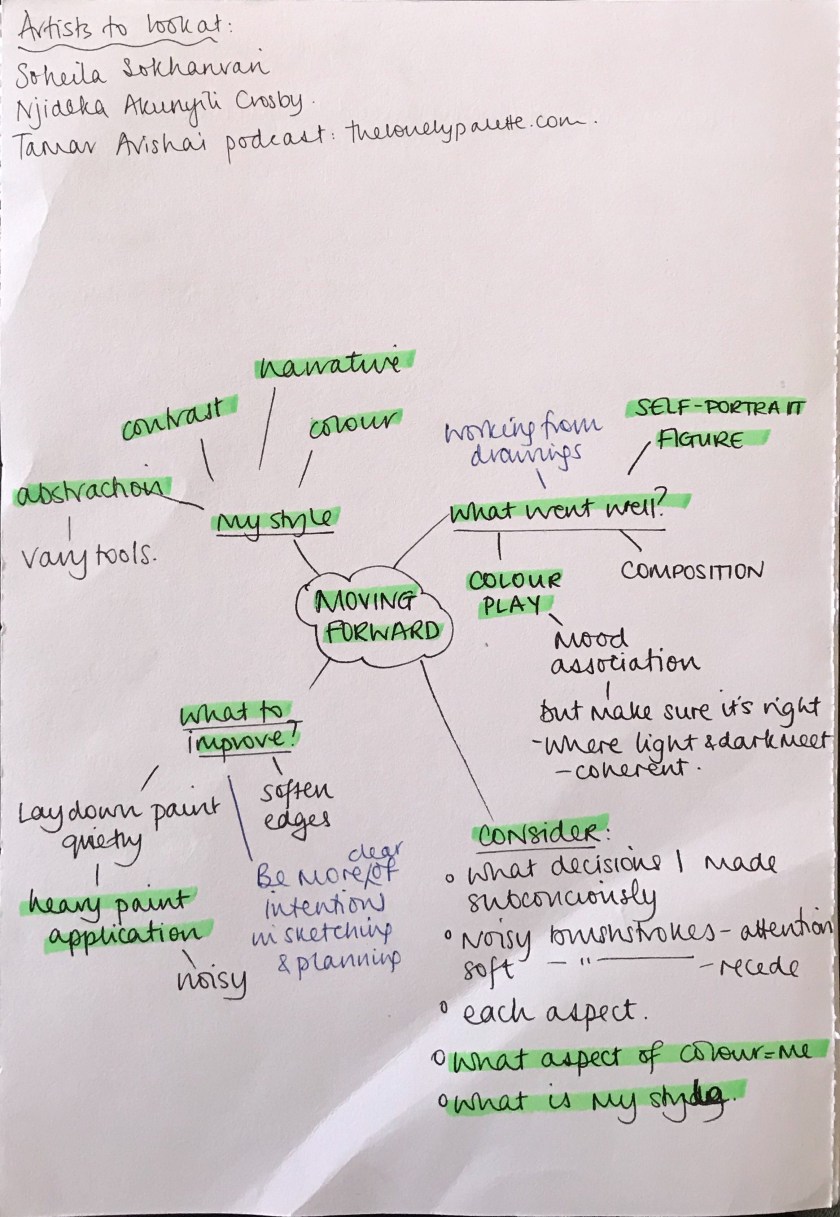 Artists to look at:
Soheila Sokhanvari
Njideka Akunyili Crosby.
Tamar Avishai podcast: thelonelypalette.com.
narrative
contrast
colour
abstraction
vary tools.
My style
working from
drawings
SELF-PORTRAIT
FIGURE
what went well?
COLOUR
PLAY
COMPOSITION
Mood
association
but make sure it's right
-where light & dark meet
- coherent.
MOVING
FORWARD
what to
improve?
Lay down paint
quietly
heavy paint
application
noisy
soften
edges
clear
Be more of
intentions
in sketching
& planning
CONSIDER:
o what decisions I made
subconciously
o Noisy brushstrokes - attention
soft - " - recede
o each aspect.
o what aspect of colour = me
o what is my style.